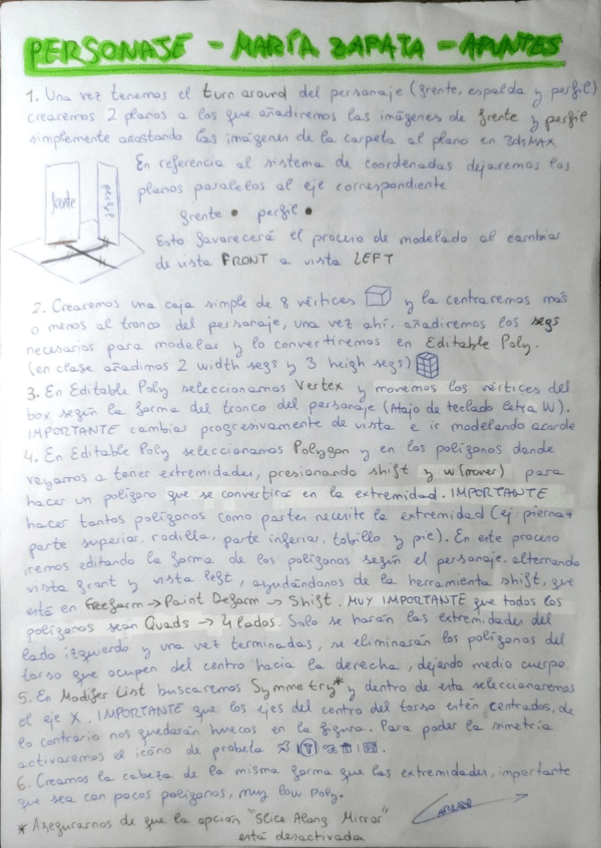 PERSONAJE - MARÍA ZAPATA - APUNTES
1. Una vez tenemos el turn around del personaje (frente, espalda y perfil)
crearemos 2 planos a los que añadiremos las imágenes de frente y perfil
simplemente arrastando las imágenes de la carpeta al plano en 3dsMAX
En referencia al sistema de coordenadas dejaremos los
planos paralelos al eje correspondiente
frente
perfil
frente • perfil •
Esto favorecerá el proceso de modelado al cambiar
de vista FRONT a vista LEFT
2. Crearemos una caja simple de 8 vértices y la centraremos más
o menos al tronco del personaje, una vez ahí, añadiremos los segs
necesarios para modelar y lo convertiremos en Editable Poly.
(en clase añadimos 2 width segs y 3 heigh segs)
3. En Editable Poly seleccionamos Vertex y movemos los vértices del
box según la forma del tronco del personaje (Atajo de teclado letra W).
IMPORTANTE cambiar progresivamente de vista e ir modelando acorde
4. En Editable Poly seleccionamos Polygon y en los polígonos donde
vayamos a tener extremidades, presionando shift y W (mover) para
hacer un polígono que se convertirá en la extremidad. IMPORTANTE
hacer tantos polígonos como partes necesite la extremidad (ej: pierna→
parte superior, rodilla, parte inferior, tobillo y pie). En este proceso
iremos editando la forma de los polígonos según el personaje, alternando
vista front y vista left, ayudándonos de la herramienta shift, que
está en Freeform → Paint Deform → Shift. MUY IMPORTANTE que todos los
polígonos sean Quads → 4 lados. Solo se harán las extremidades del
lado izquierdo y una vez terminadas, se eliminarán los polígonos del
torso que ocupen del centro hacia la derecha, dejando medio cuerpo
5. En Modifer List buscaremos Symmetry* y dentro de esta seleccionaremos
el eje X. IMPORTANTE que los ejes del centro del torso estén centrados, de
lo contrario nos quedarán huecos en la figura. Para poder la simetría
activaremos el icóno de probeta
6. Creamos la cabeza de la misma forma que las extremidades, importante
que sea con pocos polígonos, muy low poly.
* Asegurarnos de que la opción "Slice Along Mirror"
está desactivada